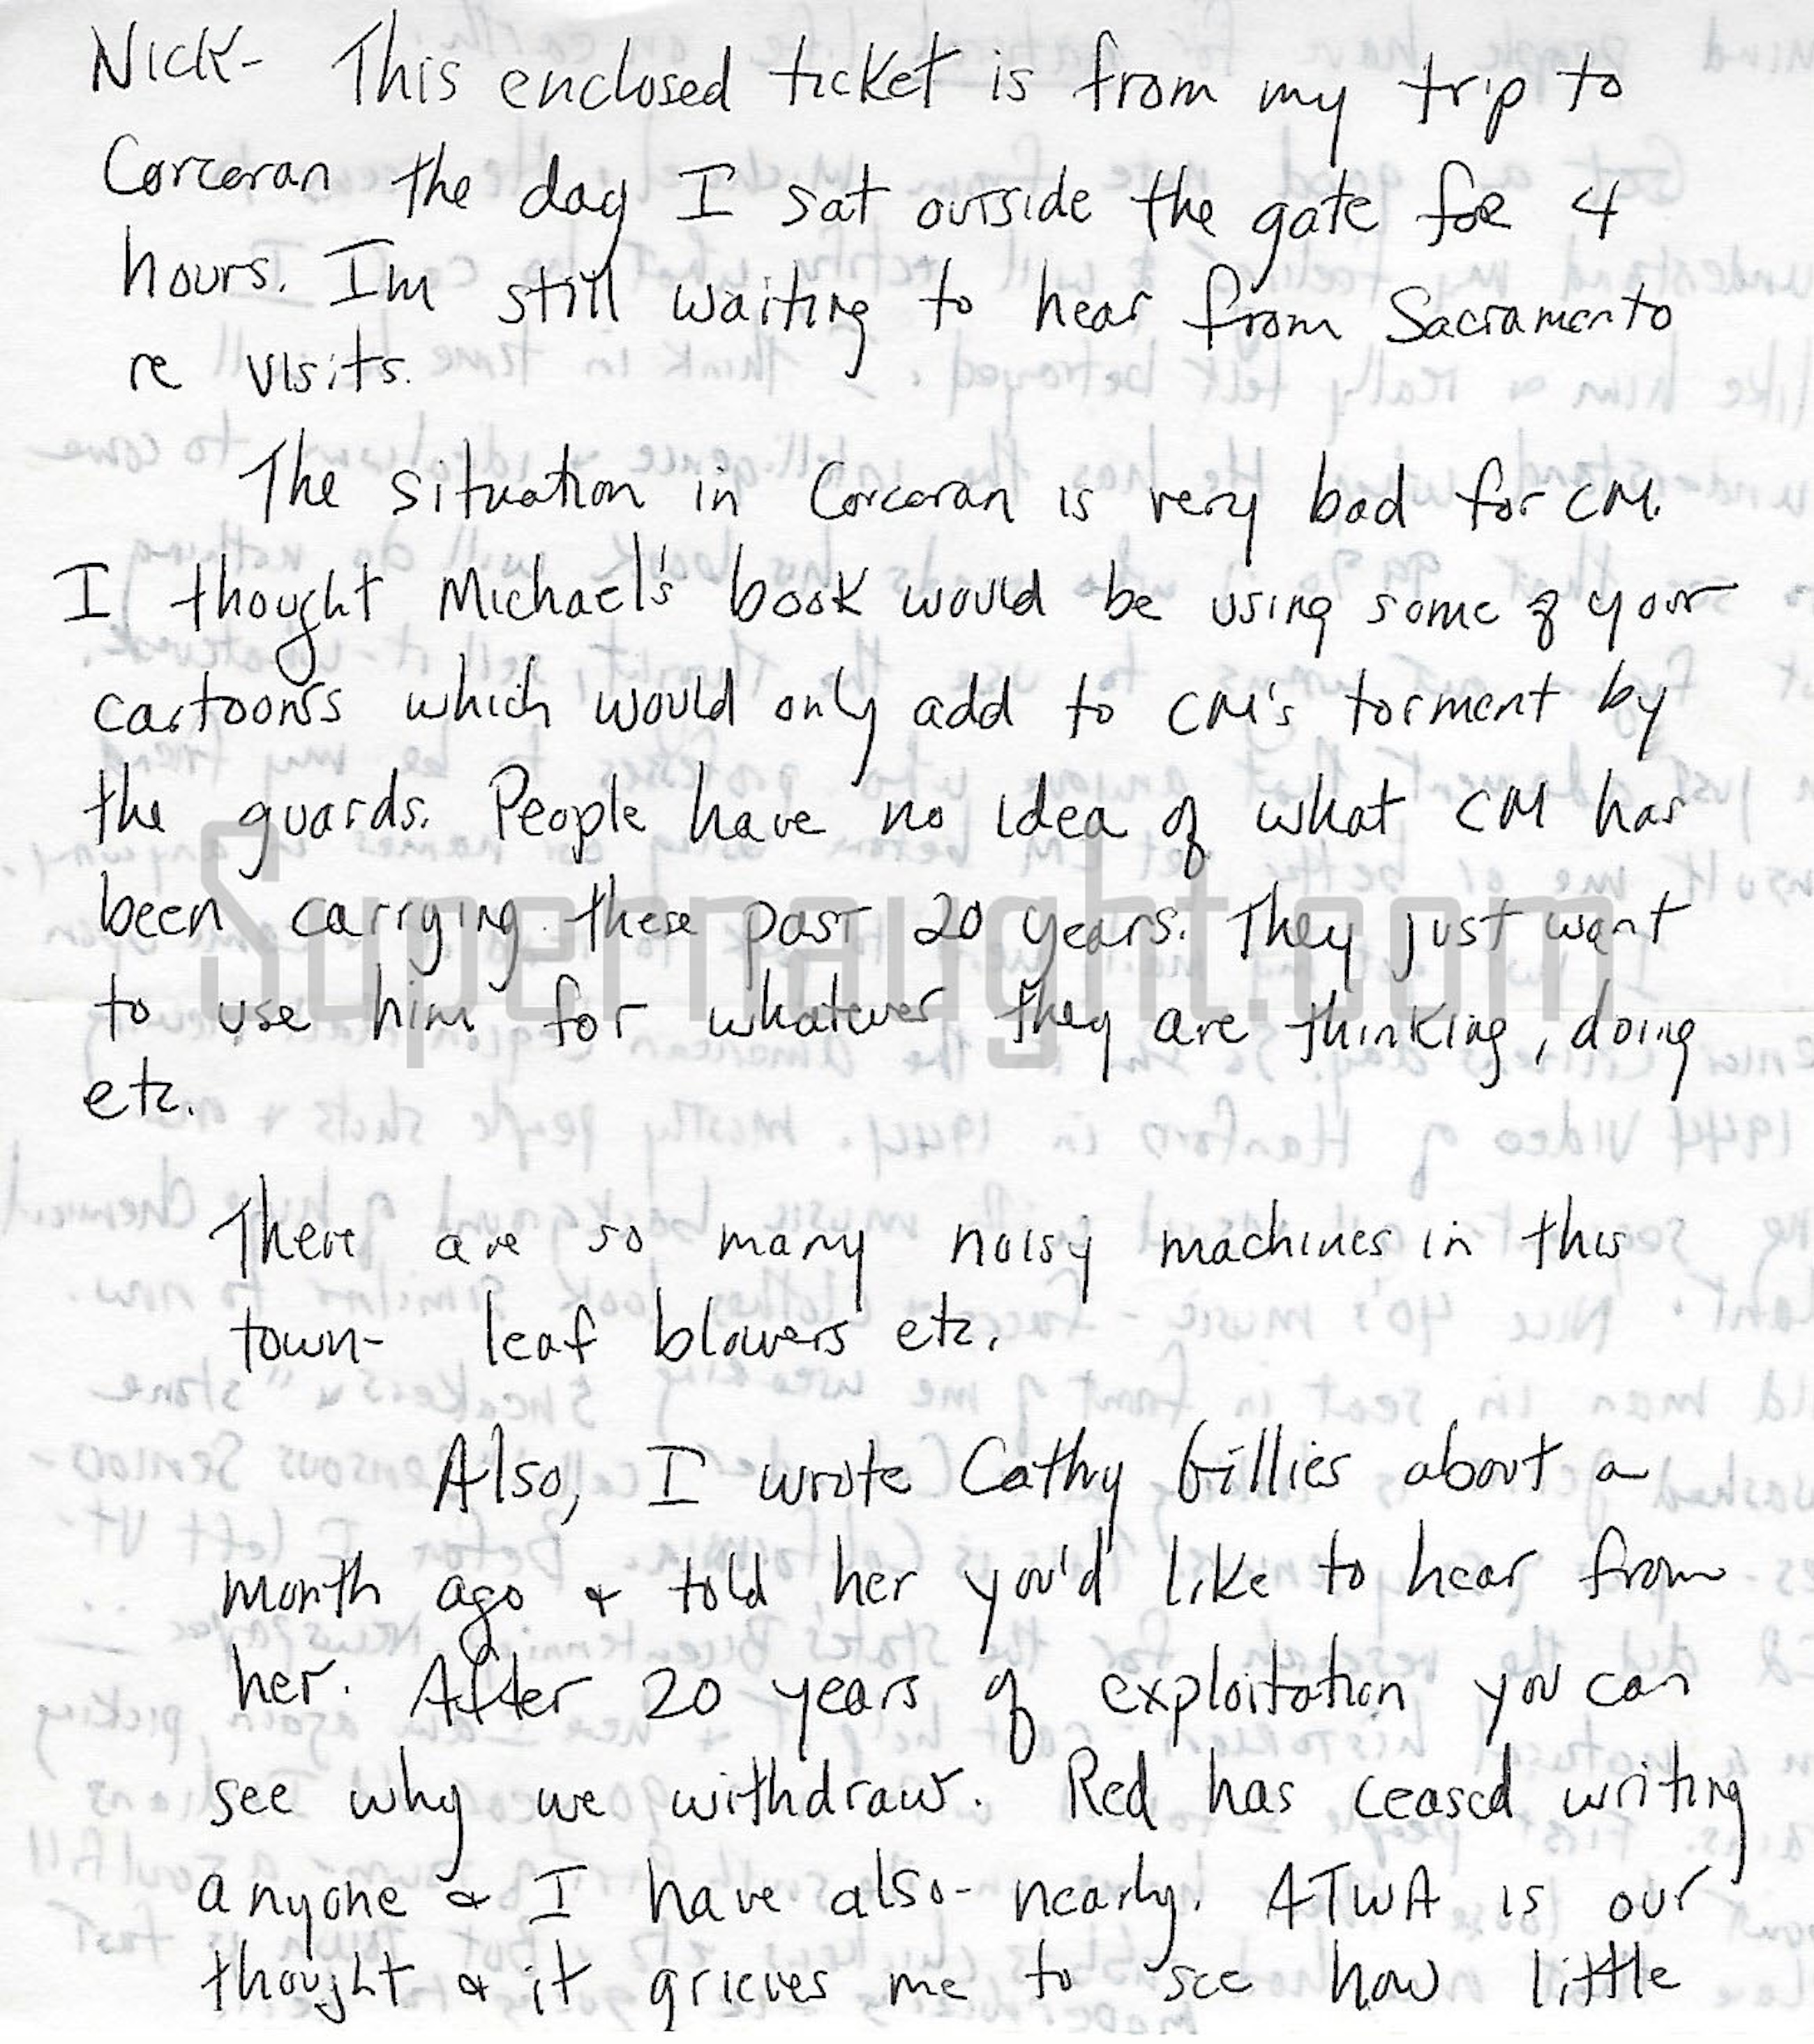 Nick- This enclosed ticket is from my trip to
Corcoran the day I sat outside the gate for 4
hours. Im still waiting to hear from Sacramento
re visits.
The situation in Corcoran is very bad for CM.
I thought Michael's book would be using some of your
cartoons which would only add to CM's torment by
the guards. People have no idea of what CM has
been carrying these past 20 years. They just want
to use him for whatever they are thinking, doing
etc.
There are so many noisy machines in this
town- leaf blowers etc.
Also, I wrote Cathy Gillies about a
month ago & told her you'd like to hear from
her. After 20 years of exploitation you can
see why we withdraw. Red has ceased writing
anyone & I have also- nearly. ATWA is our
thought & it grieves me to see how little
Supernaught.com